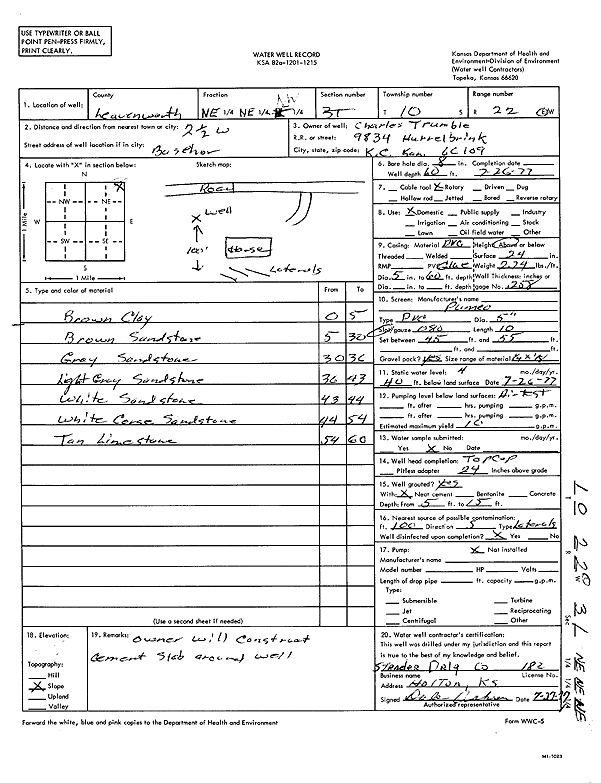 USE TYPEWRITER OR BALL
POINT PEN-PRESS FIRMLY,
PRINT CLEARLY.
WATER WELL RECORD
KSA 82a-1201-1215
Kansas Department of Health and
Environment-Division of Environment
(Water well Contractors)
Topeka, Kansas 66620
1. Location of well: County Leavenworth Fraction NE 1/4 NE 1/4 NW 1/4 Section number 31 Township number T 10 S Range number R 22 E/W
2. Distance and direction from nearest town or city: 2½ W
Street address of well location if in city: Basehor
3. Owner of well: Charles Trumble
R.R. or street: 9834 Hurrelbrink
City, state, zip code: K.C. Kan. 66109
4. Locate with "X" in section below:
Sketch map:
N
NW NE
W E
SW SE
S
1 Mile
1 Mile
X
Road
X Well
100'
House
Laterals
6. Bore hole dia. 8 in. Completion date
Well depth 60 ft. 7-26-77
7. Cable tool X Rotary Driven Dug
Hollow rod Jetted Bored Reverse rotary
8. Use: X Domestic Public supply Industry
Irrigation Air conditioning Stock
Lawn Oil field water Other
9. Casing: Material PVC Height: Above or below
Threaded Welded Surface 24 in.
RMP PVC Glue Weight 2.24 lbs./ft.
Dia. 5 in. to 60 ft. depth Wall Thickness: inches or
Dia. in. to ft. depth gage No. .208
5. Type and color of material From To
Brown Clay 0 5
Brown Sandstone 5 30
Gray Sandstone 30 36
Light Gray Sandstone 36 43
White Sandstone 43 44
White Corse Sandstone 44 54
Tan Limestone 54 60
(Use a second sheet if needed)
10. Screen: Manufacturer's name
Pumco
Type PVC Dia. 5"
Slot/gauze .080 Length 10
Set between 45 ft. and 55 ft.
ft. and ft.
Gravel pack? yes Size range of material
11. Static water level: mo./day/yr.
40 ft. below land surface Date 7-26-77
12. Pumping level below land surface: Air test
ft. after hrs. pumping g.p.m.
ft. after hrs. pumping g.p.m.
Estimated maximum yield 10 g.p.m.
13. Water sample submitted: mo./day/yr.
Yes X No Date
14. Well head completion: Top Cap
Pitless adapter 24 Inches above grade
15. Well grouted? yes
With: X Neat cement Bentonite Concrete
Depth: From 5 ft. to 15 ft.
16. Nearest source of possible contamination:
ft. 100 Direction S Type Laterals
Well disinfected upon completion? X Yes No
17. Pump: X Not installed
Manufacturer's name
Model number HP Volts
Length of drop pipe ft. capacity g.p.m.
Type:
Submersible Turbine
Jet Reciprocating
Centrifugal Other
18. Elevation:
Topography:
Hill
X Slope
Upland
Valley
19. Remarks: Owner will Construct
Cement Slab around well
20. Water well contractor's certification:
This well was drilled under my jurisdiction and this report
is true to the best of my knowledge and belief.
Strader Drlg Co 182
Business name License No.
Address Holton, KS
Signed Date 7-27-77
Authorized representative
Forward the white, blue and pink copies to the Department of Health and Environment
Form WWC-5
MI-1023
T 10 R 22 W Sec 31 1/4 1/4 1/4 NE NE NE